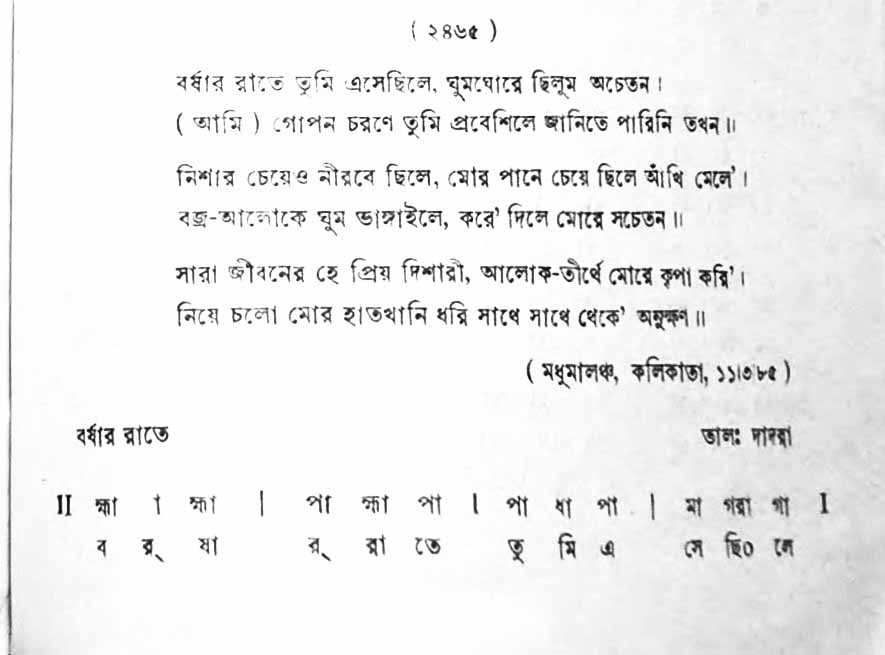 ( ২৪৬৫ )
বর্ষার রাতে তুমি এসেছিলে, ঘুমঘোরে ছিলুম অচেতন।
( আমি ) গোপন চরণে তুমি প্রবেশিলে জানিতে পারিনি তখন॥
নিশার চেয়েও নীরবে ছিলে, মোর পানে চেয়ে ছিলে আঁখি মেলে'।
বজ্র-আলোকে ঘুম ভাঙ্গাইলে, করে' দিলে মোরে সচেতন॥
সারা জীবনের হে প্রিয় দিশারী, আলোক-তীর্থে মোরে কৃপা করি'।
নিয়ে চলো মোর হাতখানি ধরি সাথে সাথে থেকে' অনুক্ষণ॥
( মধুমালঞ্চ, কলিকাতা, ১১।৩৮৫ )
বর্ষার রাতে তাল: দাদরা
II হ্মা । হ্মা | পা হ্মা পা । পা ধা পা | মা গরা গা I
ব র্ ষা র্ রা তে তু মি এ সে ছি০ লে